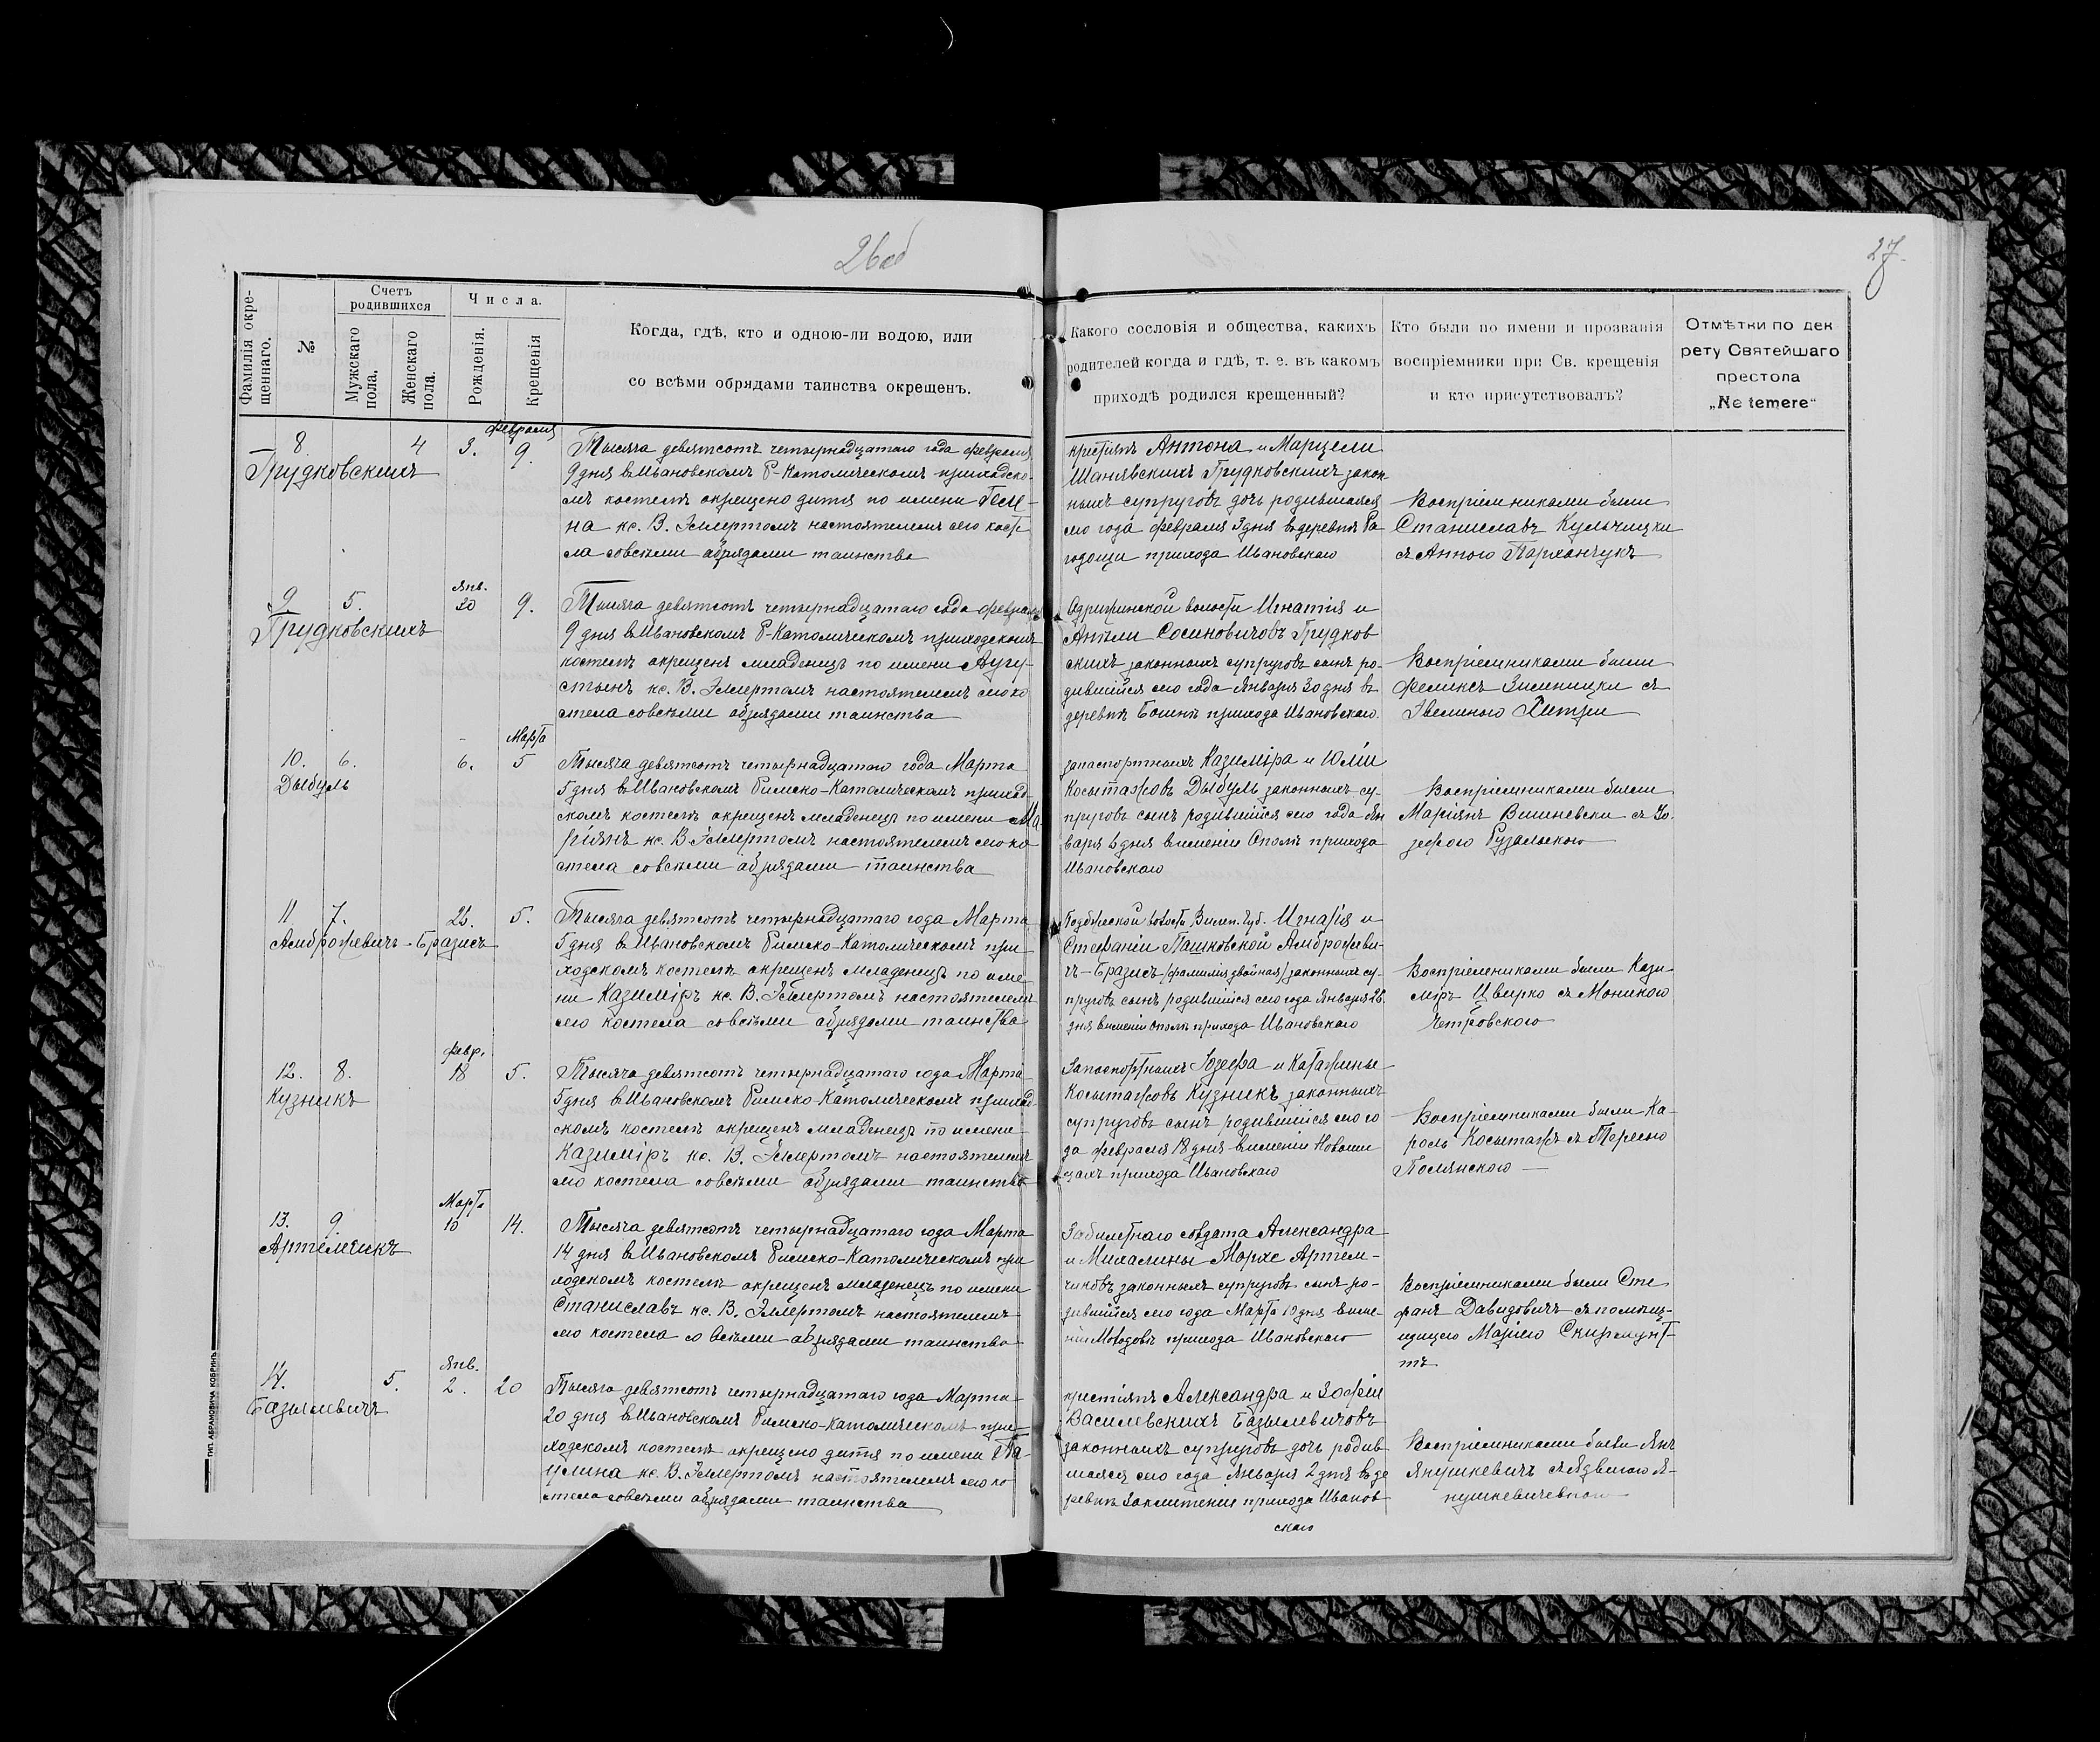 26об
27.
Фамилія окре-
щеннаго.
№
Счетъ
родившихся
Мужскаго
пола.
Женскаго
пола.
Числа.
Рожденія.
Крещенія
Когда, гдѣ, кто и одною-ли водою, или
со всѣми обрядами таинства окрещенъ.
Какого сословія и общества, какихъ
родителей когда и гдѣ, т. е. въ какомъ
приходѣ родился крещенный?
Кто были по имени и прозванія
воспріемники при Св. крещенія
и кто присутствовалъ?
Отмѣтки по дек
рету Святейшаго
престола
„Ne temere“
февраля
8 4 3. 9.
Грудковскихъ
Тысяча девятсотъ четырнадцатаго года февраля
9 дня в Ивановскомъ Р-Католическомъ приходско-
мъ костелѣ окрещено дитя по имени
на кс. В. Эллертомъ настоятелемъ сего косте
ла совсѣми обрядами таинства
крестіянъ Антона и Марцели
Шанявскихъ Грудковскихъ закон
ныхъ супруговъ дочь родившаяся
сего года февраля 3 дня въ деревнѣ
прихода Ивановскаго
Воспріемниками были
Станиславъ Кульчицки
съ Анною Пархончукъ
Янв.
9 5. 30 9.
Грудковскихъ
Тысяча девятсотъ четырнадцатаго года февраля
9 дня в Ивановскомъ Р-Католическомъ приходскомъ
костелѣ окрещенъ младенецъ по имени Аугу-
стынъ кс. В. Эллертомъ настоятелемъ сего ко
стела совсѣми обрядами таинства
Одрижинской волости Игнатія и
Анѣли Сосиновичовъ Грудков
скихъ законныхъ супруговъ сынъ ро-
дившійся сего года Января 30 дня въ
деревнѣ прихода Ивановскаго.
Воспріемниками были
Феликсъ Зилиницки съ
Эвелиною
Марта
10. 6. 6. 5
Дыбуль
Тысяча девятсотъ четырнадцатаго года Марта
5 дня в Ивановскомъ Римско-Католическомъ приход-
скомъ костелѣ окрещенъ младенецъ по имени Ма
ріянъ кс. В. Эллертомъ настоятелемъ сего ко
стела совсѣми обрядами таинства
запаспортныхъ Казиміра и Юліи
Косытажовъ Дыбуль законныхъ су-
пруговъ сынъ родившійся сего года Ян
варя 6 дня в имѣніи Ополѣ прихода
Ивановскаго
Воспріемниками были
Маріянъ Вишневски съ Ю-
зефою
11 7. 26. 5.
Амброжевичъ-Бразисъ
Тысяча девятсотъ четырнадцатаго года Марта
5 дня в Ивановскомъ Римско-Католическомъ при
ходскомъ костелѣ окрещенъ младенецъ по име
ни Казиміръ кс. В. Эллертомъ настоятелемъ
сего костела совсѣми обрядами таинства
волости Вилен. Губ. Игнатія и
Стефаніи Пашковской Амброжеви-
чъ-Бразисъ /фамилія двойная/ законныхъ су-
пруговъ сынъ родившійся сего года Января 26
дня в имѣніи Ополѣ прихода Ивановскаго
Воспріемниками были Кази-
міръ Цвирко съ Моникою
Четровскою
февр.
12. 8. 18 5.
Кузникъ
Тысяча девятсотъ четырнадцатаго года Марта
5 дня в Ивановскомъ Римско-Католическомъ приход
скомъ костелѣ окрещенъ младенецъ по имени
Казиміръ кс. В. Эллертомъ настоятелемъ
сего костела совсѣми обрядами таинства
Запаспортныхъ Юзефа и Катажины
Косытажовъ Кузникъ законныхъ
супруговъ сынъ родившійся сего го
да февраля 18 дня в имѣніи
прихода Ивановскаго
Воспріемниками были Ка-
роль Косытажъ съ Терезею
Полянскою —
Марта
13. 9 10 14.
Артемчикъ
Тысяча девятсотъ четырнадцатаго года Марта
14 дня в Ивановскомъ Римско-Католическомъ при
ходскомъ костелѣ окрещенъ младенецъ по имени
Станиславъ кс. В. Эллертомъ настоятелемъ
сего костела со всѣми обрядами таинства
Забилетнаго солдата Александра
и Михалины Артем-
чиковъ законныхъ супруговъ сынъ ро-
дившійся сего года Марта 10 дня в имѣ-
ніи Молодовѣ прихода Ивановскаго
Воспріемниками были Сте
фанъ Давидовичъ съ помѣщ-
ицею Маріею Скирмунт-
тъ
Янв.
14. 5. 2. 20
Базылевичъ
Тысяча девятсотъ четырнадцатаго года Марта
20 дня в Ивановскомъ Римско-Католическомъ при
ходскомъ костелѣ окрещено дитя по имени Па-
улина кс. В. Эллертомъ настоятелемъ сего ко
стела совсѣми обрядами таинства
крестіянъ Александра и Зофіи
Василевскихъ Базылевичовъ
законныхъ супруговъ дочь родив
шаяся сего года Января 2 дня въ де
ревнѣ прихода Иванов
скаго
Воспріемниками были Янъ
Янушкевичъ съ Ядвигою Я-
нушкевичевною
ТИП. АБРАМОВИЧА КОБРИНЪ